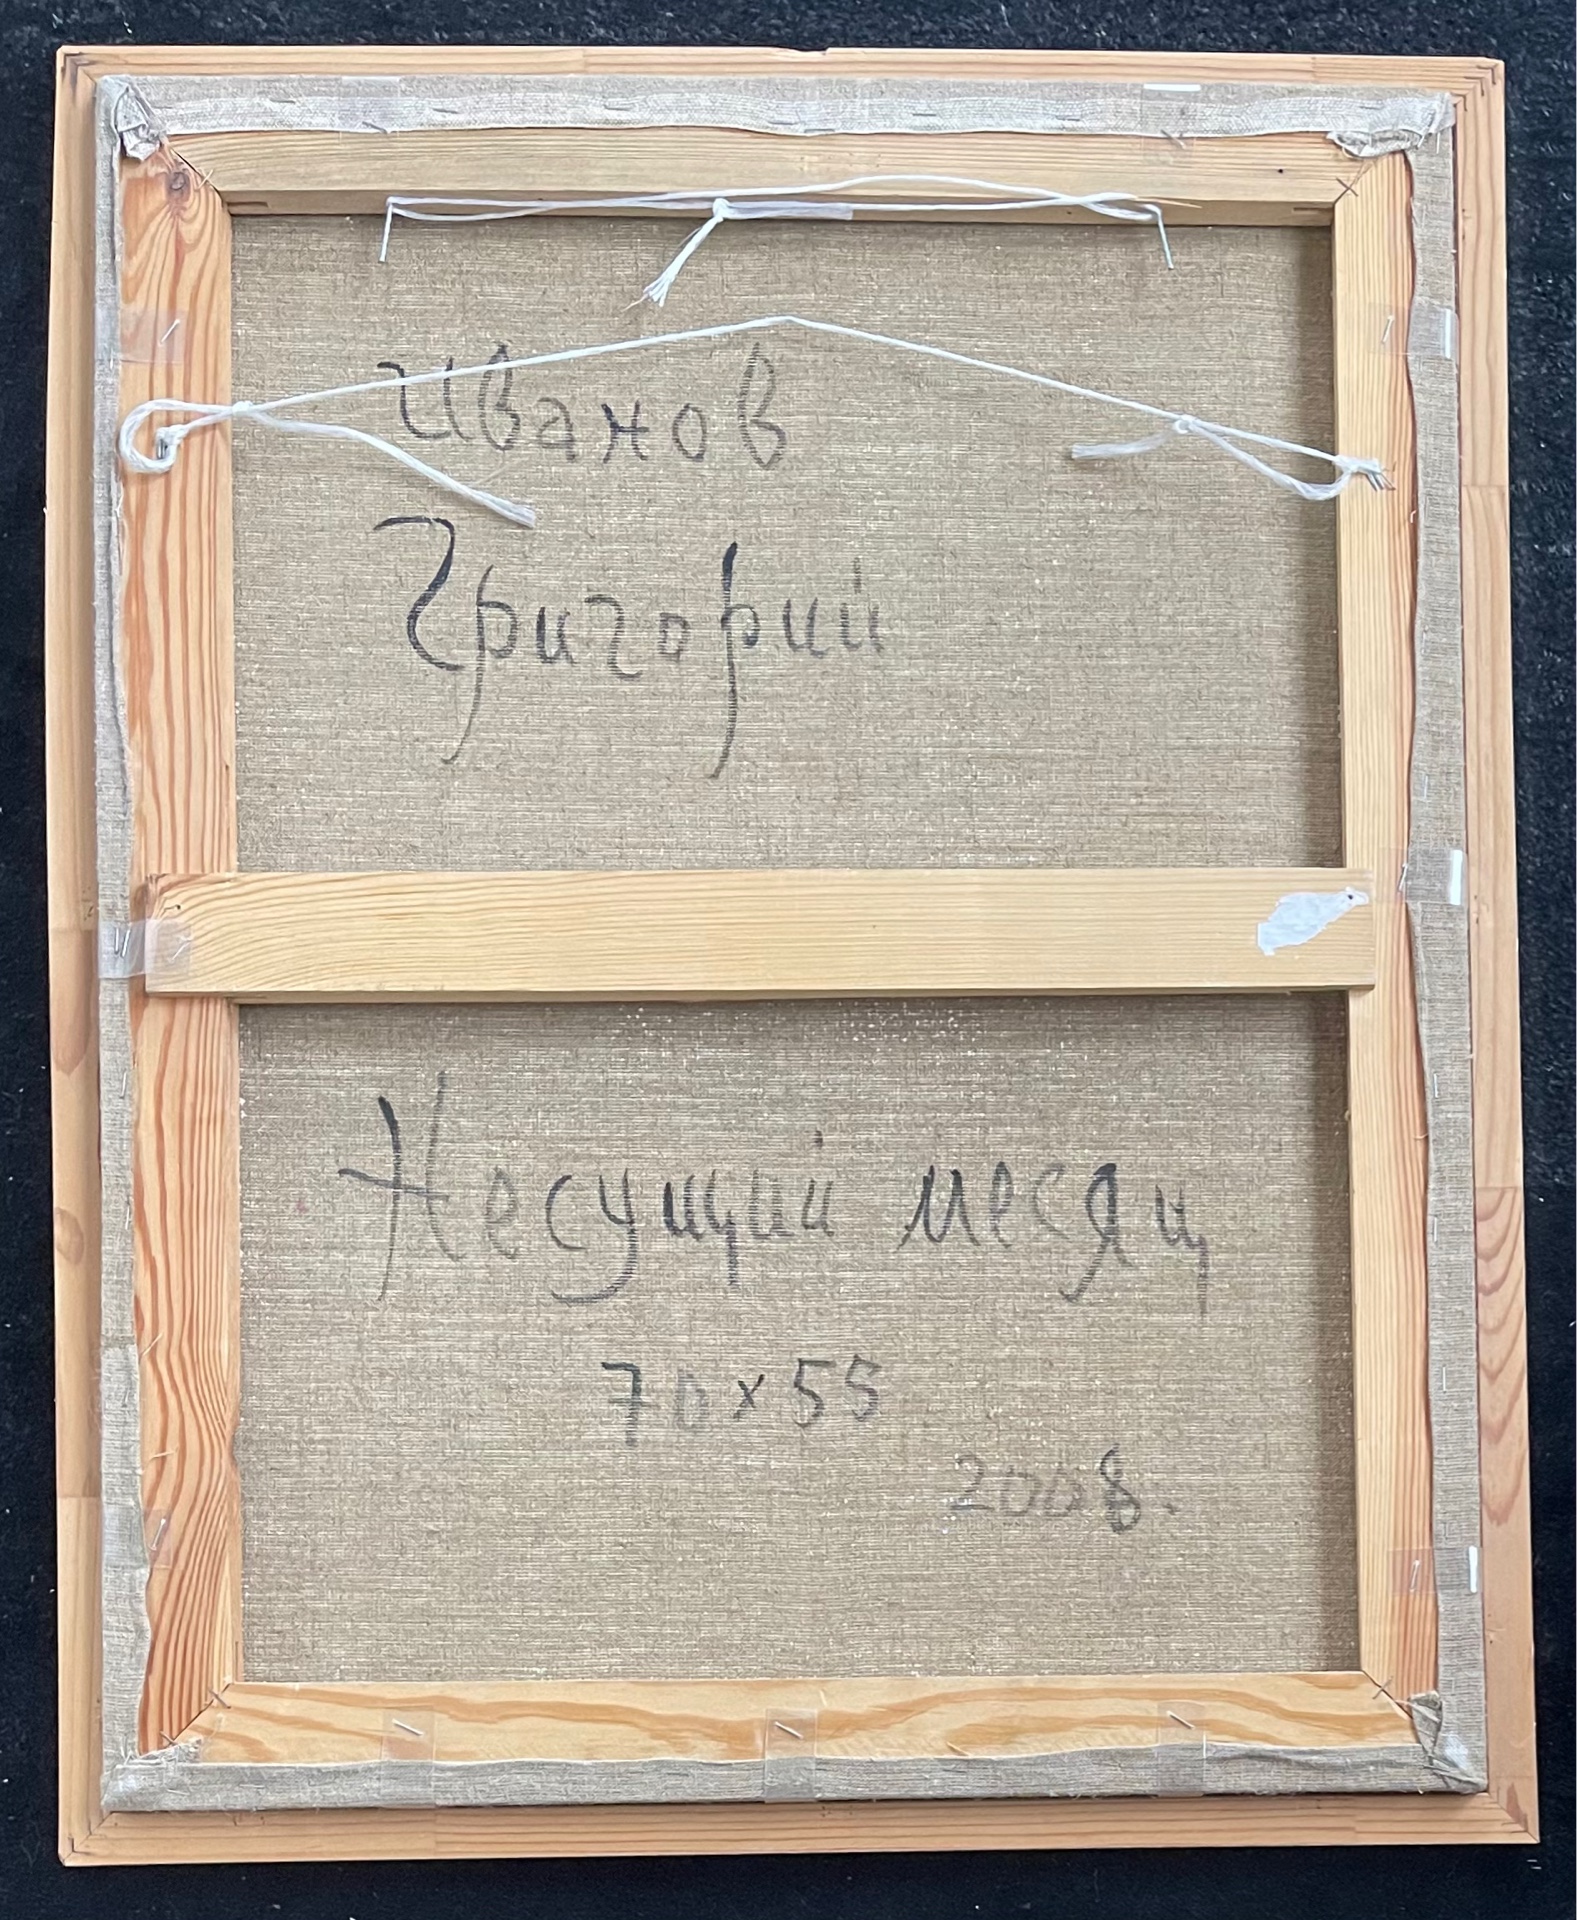 Иванов
Григорий
Несущий месяц
70x55
2008.